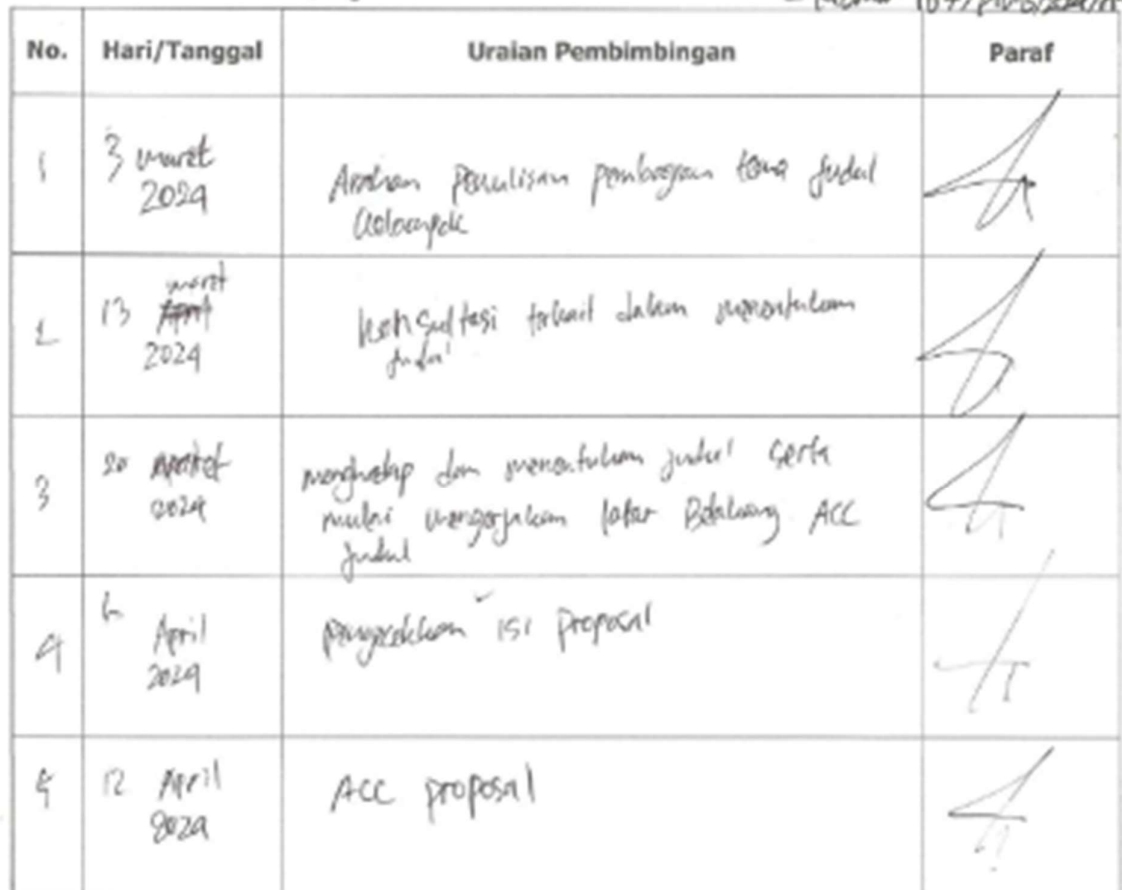 No. Hari/Tanggal Uraian Pembimbingan Paraf
1 3 maret Arahan Penulisan pembagian tema Judul
2024 Kelompok
maret
2 13 April konsultasi terkait dalam menentukan
2024 judul
3 20 maret menghadap dan menentukan judul serta
2024 mulai mengerjakan latar Belakang ACC
judul
4 6 April pengecekkan isi proposal
2024
5 12 April ACC proposal
2024